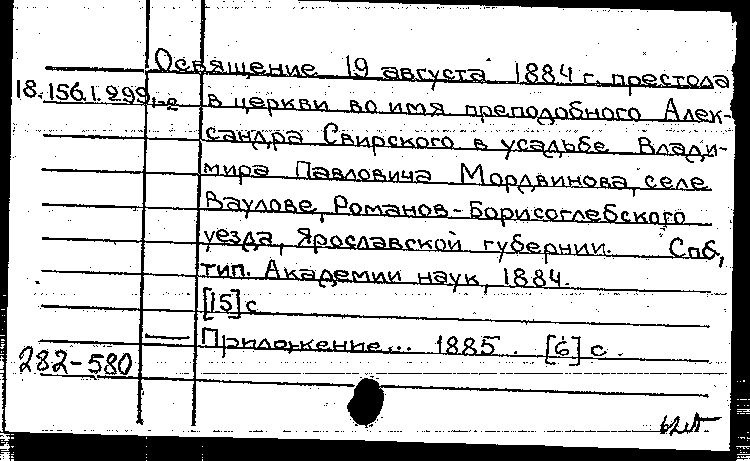 Освящение 19 августа 1884 г. престола
18.156.1.299,1-е в церкви во имя преподобного Алек-
сандра Свирского в усадьбе Влади-
мира Павловича Мордвинова, селе
Ваулове, Романов-Борисоглебского
уезда, Ярославской губернии. Спб,
тип. Академии наук, 1884.
[15] с
— Приложение... 1885. [6] с.
282-580